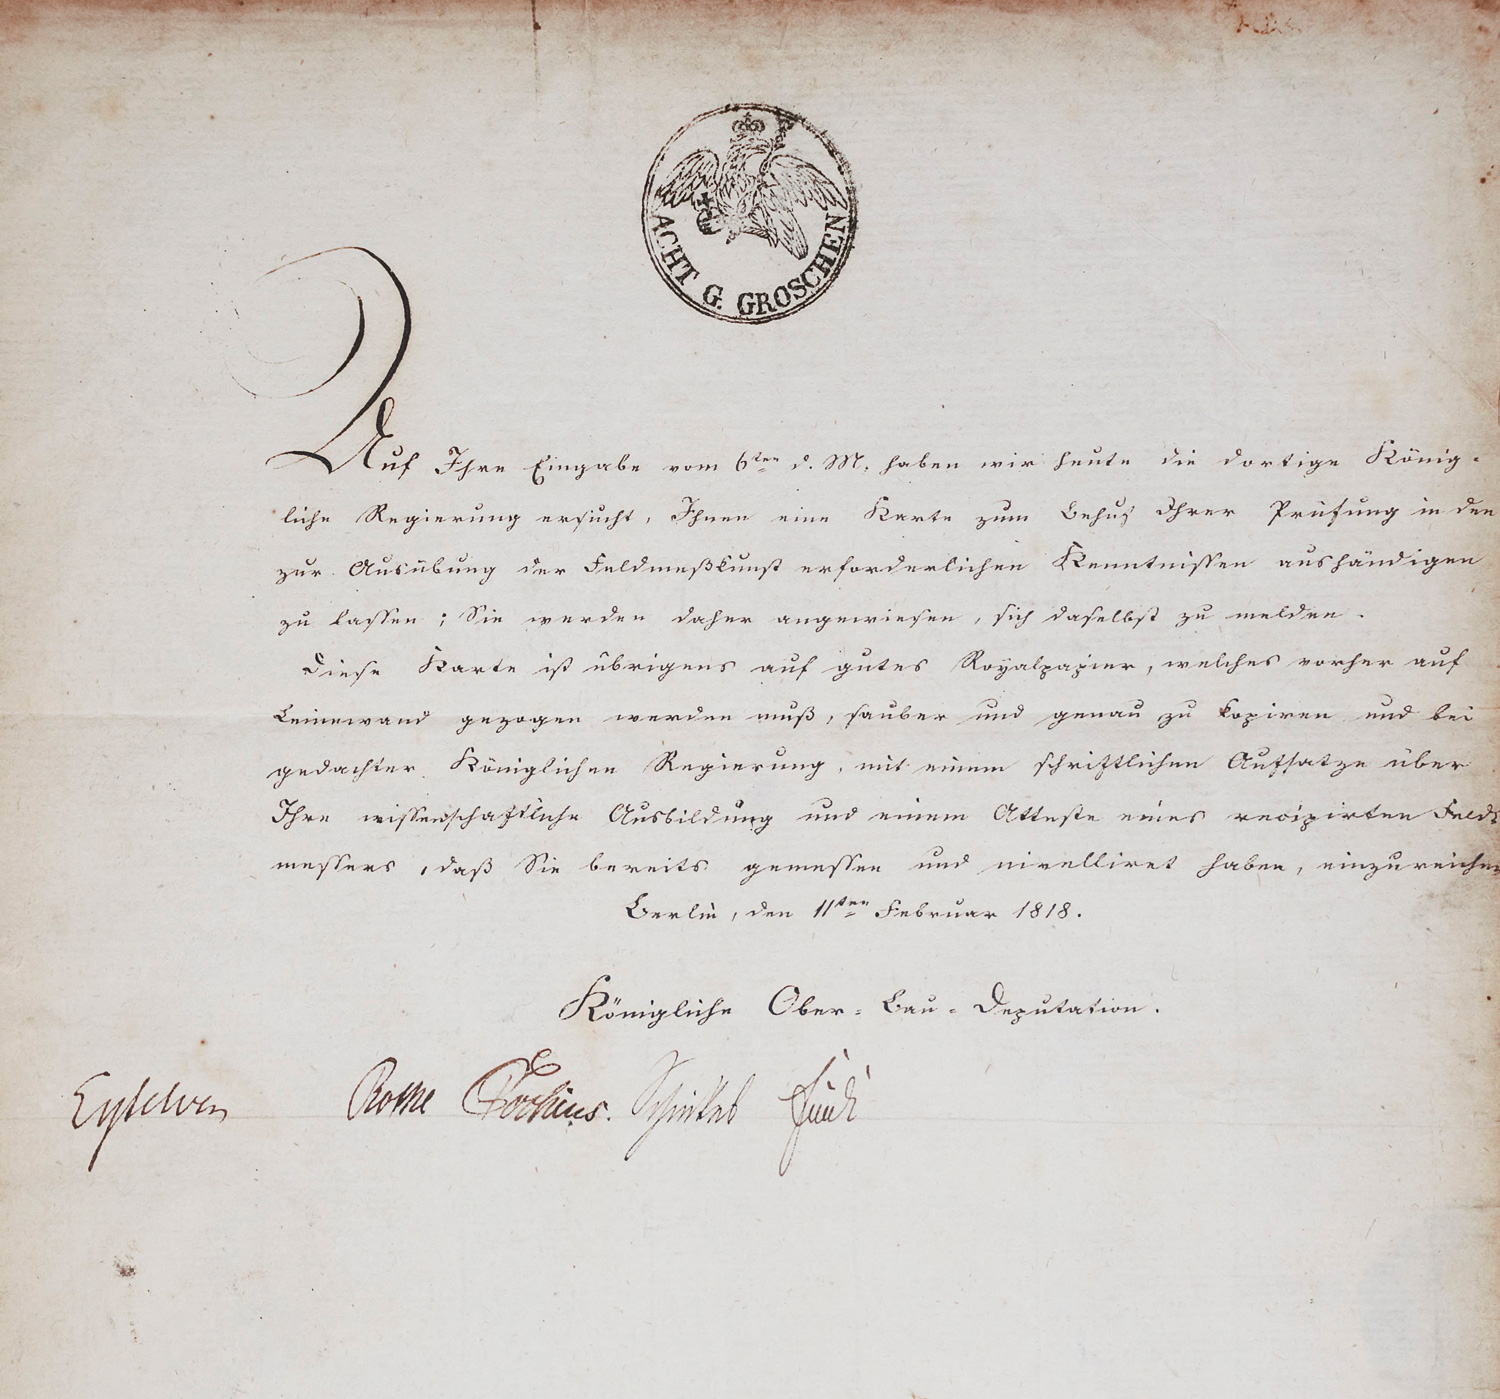 ACHT G. GROSCHEN
Auf Ihre Eingabe vom 6ten d. M. haben wir heute die dortige König-
liche Regierung ersucht, Ihnen eine Karte zum Behuf Ihrer Prüfung in den
zur Ausübung der Feldmeßkunst erforderlichen Kenntnissen aushändigen
zu lassen; Sie werden daher angewiesen, sich daselbst zu melden.
Diese Karte ist übrigens auf gutes Royalpapier, welches vorher auf
Leinewand gezogen werden muß, sauber und genau zu kopiren und bei
gedachter Königlichen Regierung, mit einem schriftlichen Aufsatze über
Ihre wissenschaftliche Ausbildung und einem Atteste eines recipirten Feld-
messers, daß Sie bereits gemessen und nivelliret haben, einzureichen
Berlin, den 11ten Februar 1818.
Königliche Ober-Bau-Deputation.
Eytelwein Rothe Cochius. Schinkel Funk